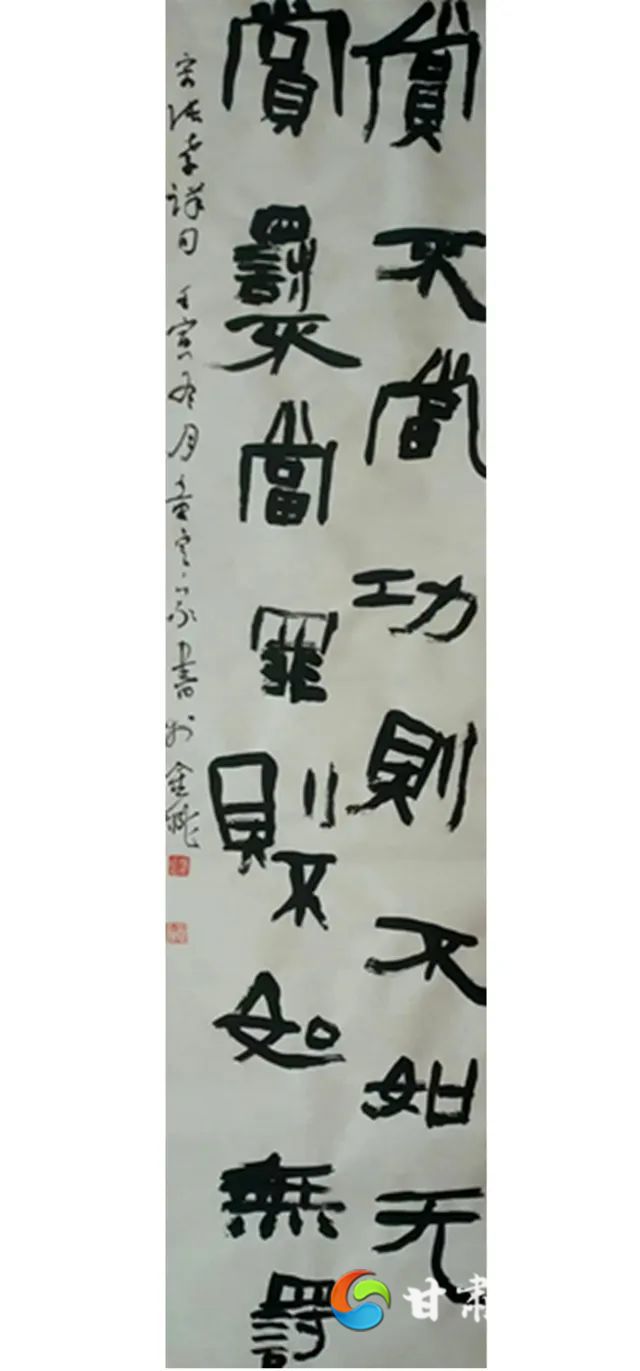 賞不當功則不如无
賞罰不當罪則不如無罰
宋张孝祥句 壬寅 月 書於金城
甘肃